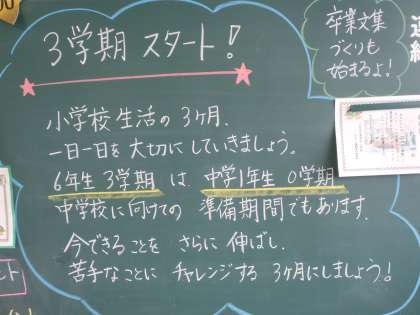 3学期 スタート!
卒業文集
づくりも
始まるよ!
小学校生活の3ヶ月.
一日一日を大切にしていきましょう。
6年生3学期 は 中学1年生 0学期
中学校に向けての 準備期間でもあります.
今できることを さらに 伸ばし.
苦手なことに チャレンジする 3ヶ月にしましょう!